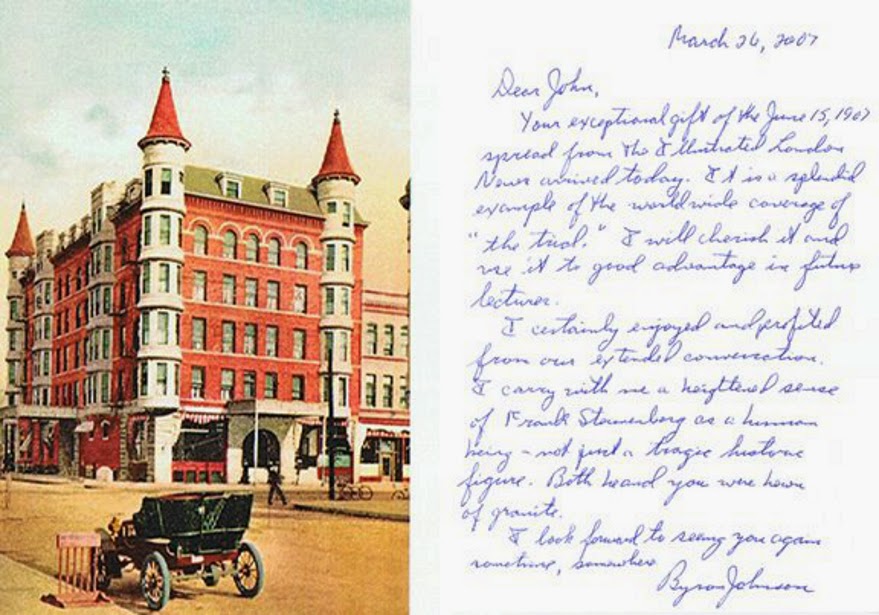 March 26, 2007
Dear John,
Your exceptional gift of the June 15, 1907
spread from the Illustrated London
News arrived today. It is a splendid
example of the worldwide coverage of
"the trial." I will cherish it and
use it to good advantage in future
lectures.
I certainly enjoyed and profited
from our extended conversation.
I carry with me a heightened sense
of Frank Steunenberg as a human
being - not just a tragic historic
figure. Both he and you were hewn
of granite.
I look forward to seeing you again
sometime, somewhere.
Byron Johnson